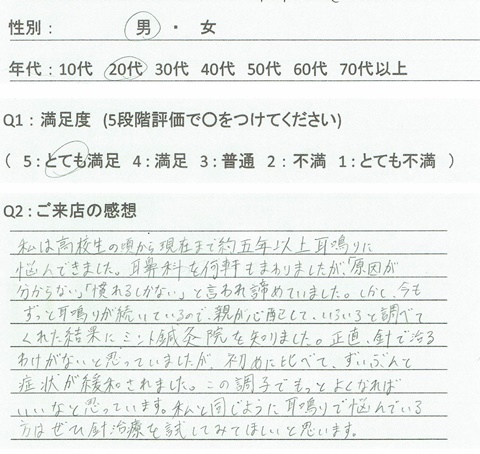 性別： 男 ・ 女
年代：10代 20代 30代 40代 50代 60代 70代以上
Q1：満足度 (5段階評価で〇をつけてください)
( 5：とても満足 4：満足 3：普通 2：不満 1：とても不満 )
Q2：ご来店の感想
私は高校生の頃から現在まで約五年以上耳鳴りに
悩んできました。耳鼻科を何軒もまわりましたが、「原因が
分からない」「慣れるしかない」と言われ諦めていました。しかし、今も
ずっと耳鳴りが続いているので、親が心配して、いろいろと調べて
くれた結果にミント鍼灸院を知りました。正直、針で治る
わけがないと思っていましたが、初めに比べて、ずいぶんと
症状が緩和されました。この調子でもっとよくなれば
いいなと思っています。私と同じように耳鳴りで悩んでいる
方はぜひ針治療を試してみてほしいと思います。